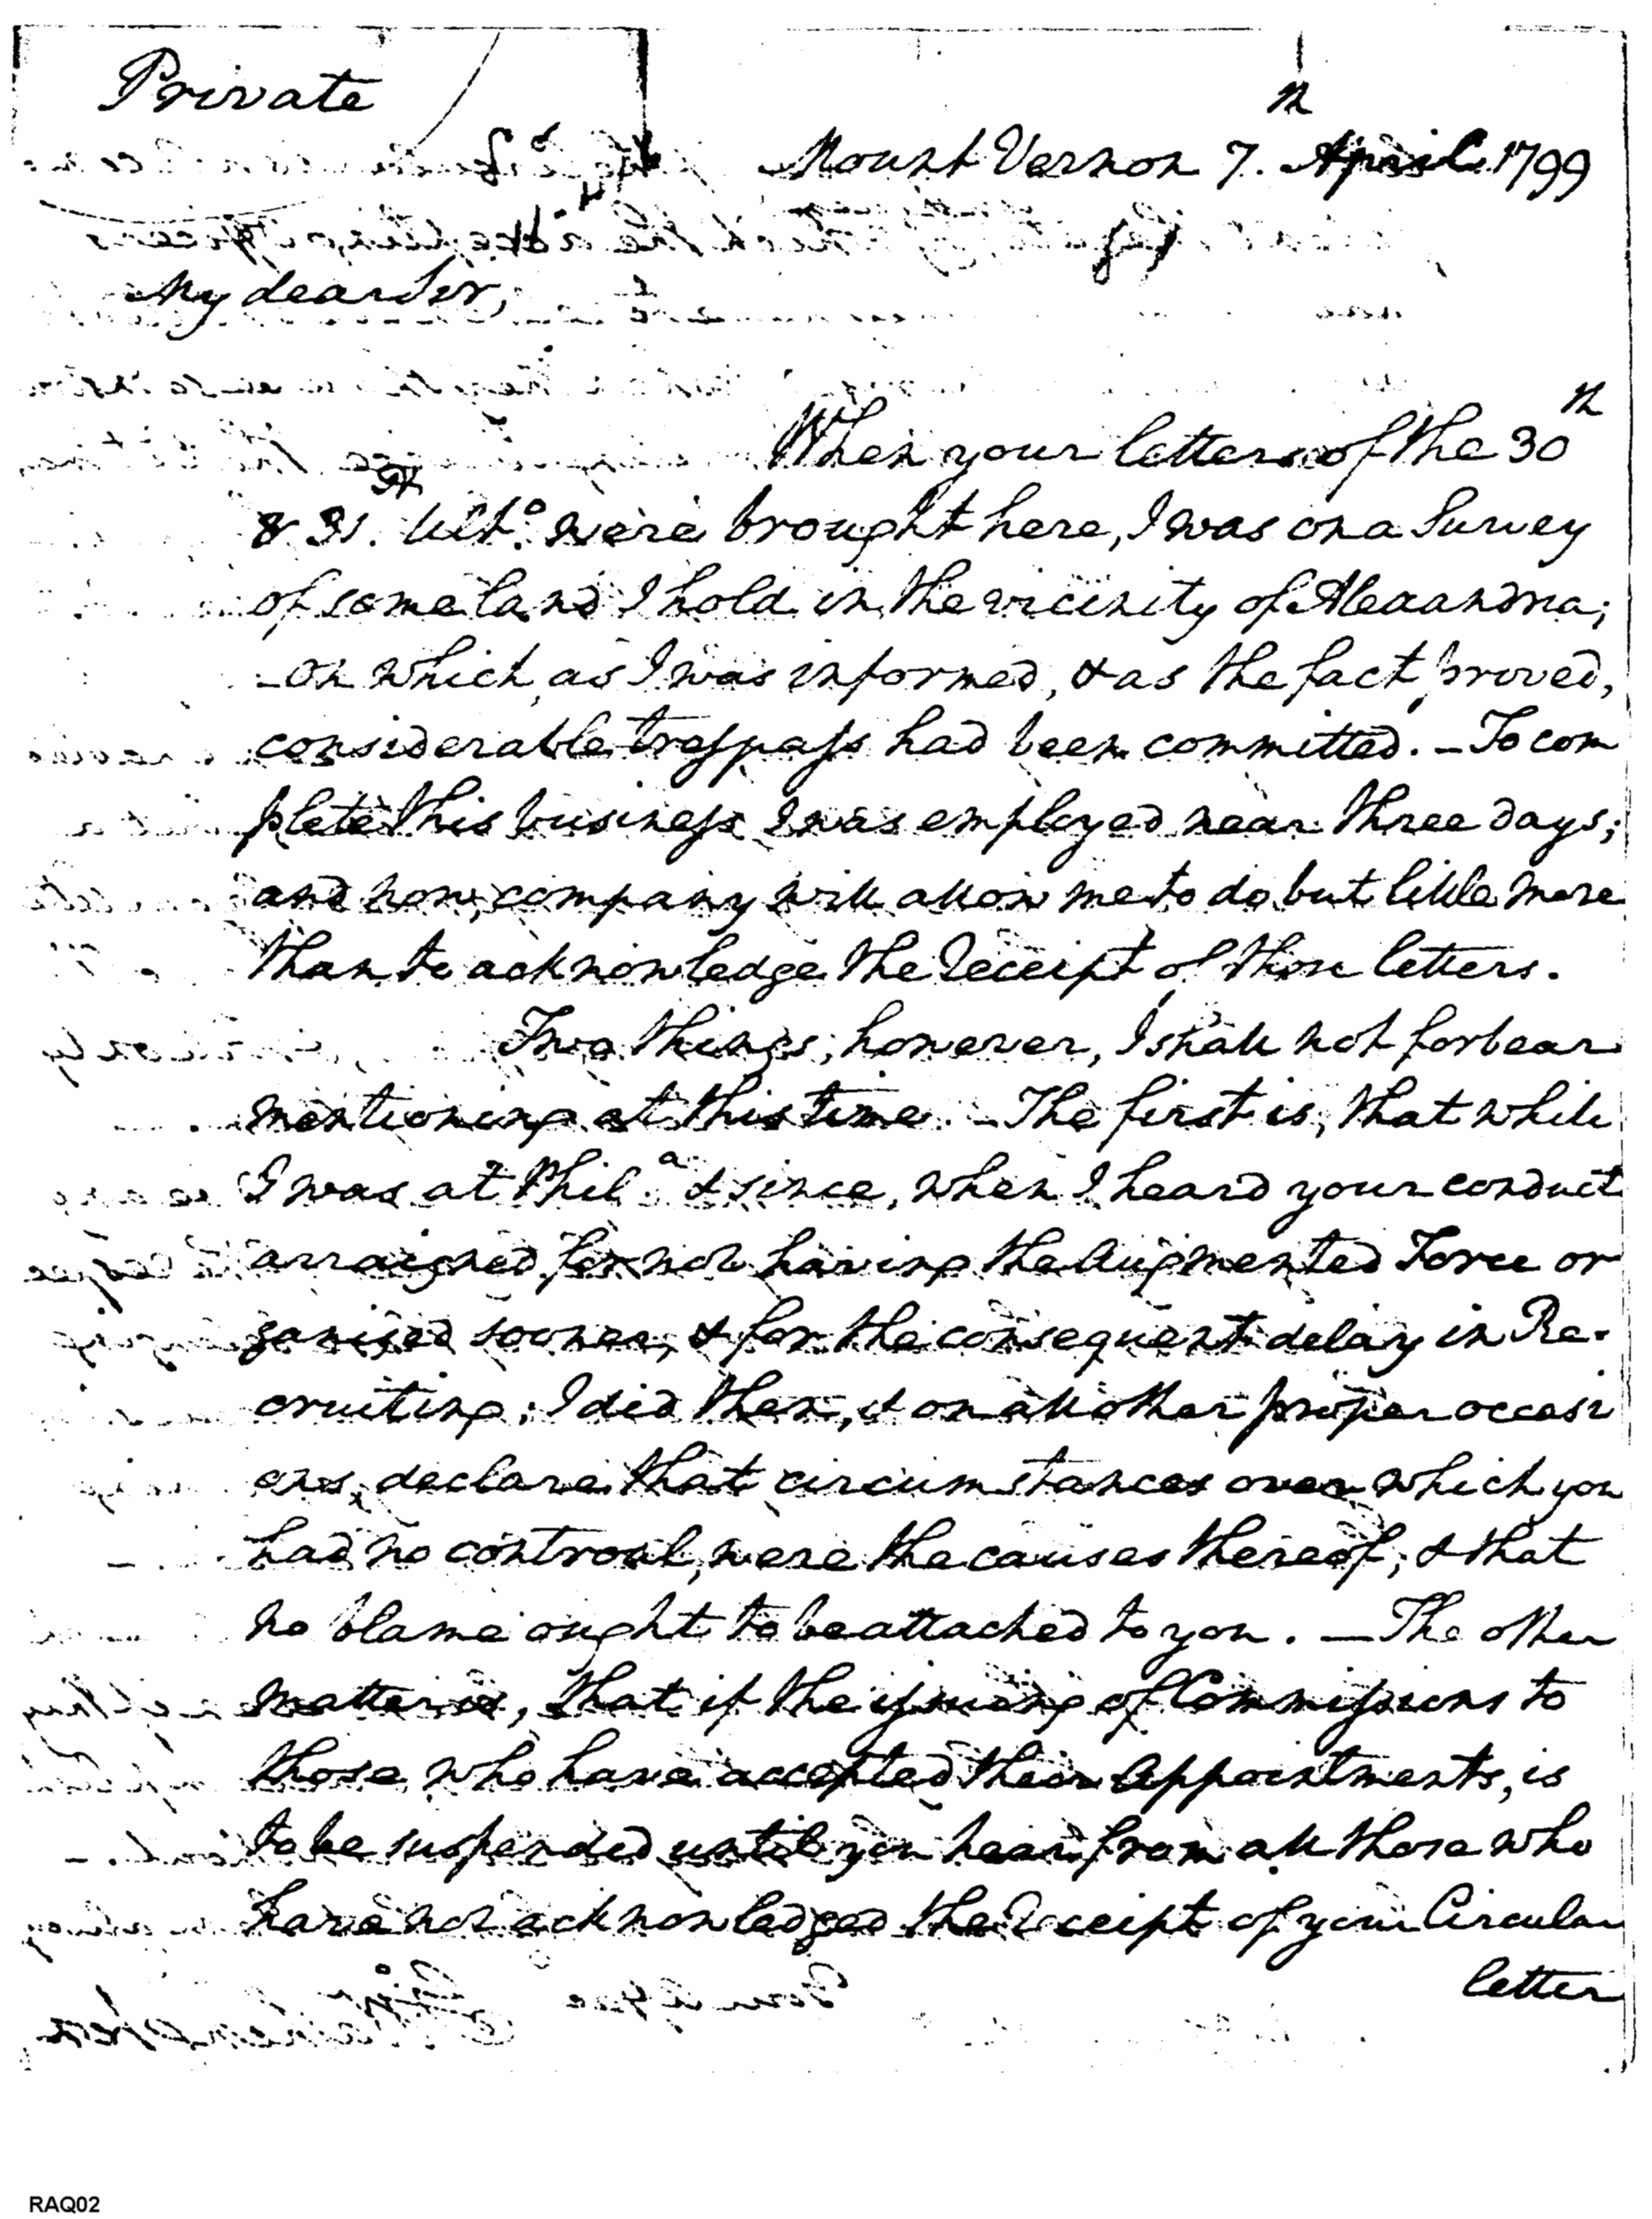 Private
Mount Vernon 7th. April 1799
My dear Sir,
When your letters of the 30th
& 31st. Ulto. were brought here, I was on a Survey
of some land I hold in the vicinity of Alexandria;
–on which, as I was informed, & as the fact proved,
considerable trespass had been committed. – To com
plete this business I was employed near three days;
and now, company will allow me to do but little more
than to acknowledge the receipt of those letters.
Two things, however, I shall not forbear
mentioning at this time. – The first is, that while
I was at Phila. & since, when I heard your conduct
arraigned for not having the Augmented Force or
ganised sooner, & for the consequent delay in Re-
cruiting; I did then, & on all other proper occasi
ons, declare that circumstances over which you
had no controul, were the causes thereof; & that
no blame ought to be attached to you. – The other
matter is, that if the issuing of Commissions to
those who have accepted their Appointments, is
to be suspended until you hear from all those who
have not acknowledged the receipt of your Circular
letter
RAQ02